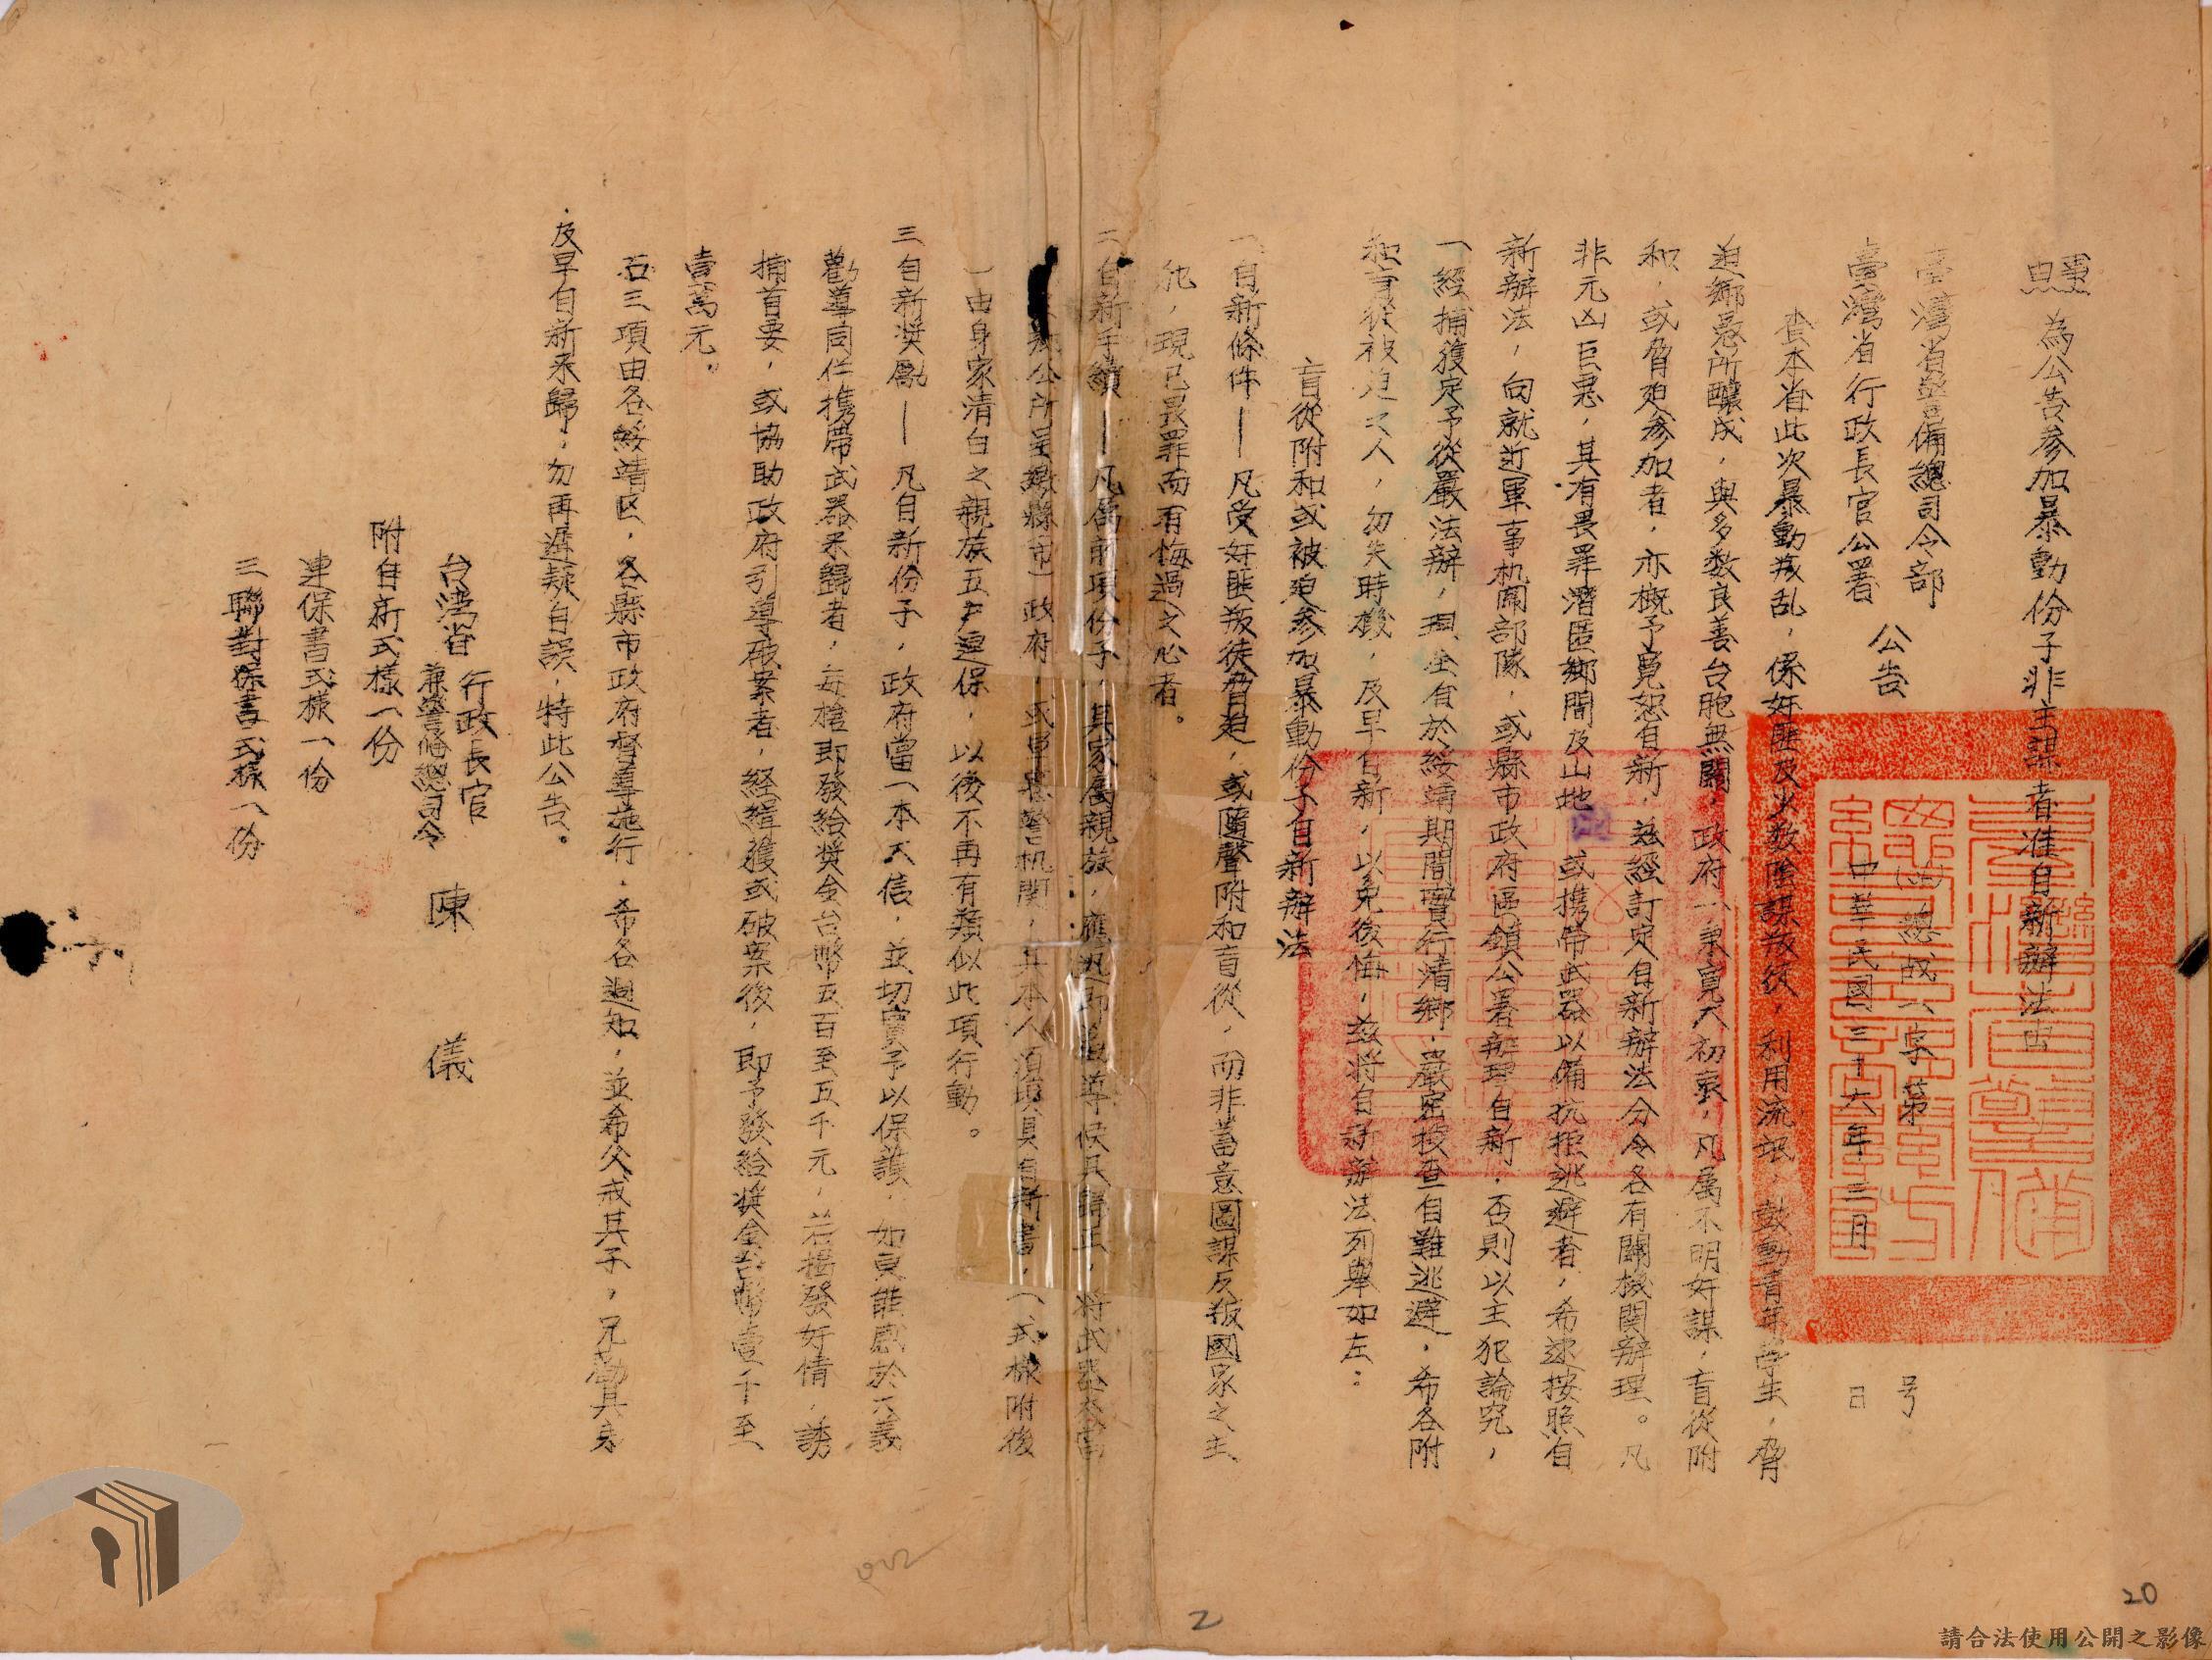 事由 為公告參加暴動份子非主謀者准自新辦法由
臺灣省警備總司令部
臺灣省行政長官公署
公告
總戰一字第
号
中華民國三十六年三月
日
查本省此次暴動叛乱，係奸匪及少数陰謀叛徒，利用流氓，鼓動青年學生，脅
迫鄉愚所釀成，與多数良善台胞無關，政府一秉寬大初衷，凡属不明奸謀，盲從附
和，或脅迫參加者，亦概予寬恕自新，茲經訂定自新辦法分令各有關機関辦理。凡
非元凶巨惡，其有畏罪潛匿鄉間及山地，或携帶武器以備抗拒逃避者，希速按照自
新辦法，向就近軍事机関部隊，或縣市政府區鎮公署辦理自新，否則以主犯論究，
一經捕獲定予從嚴法辦，現全省於綏靖期間實行清鄉，嚴密檢查自難逃避，希各附
和盲從被迫之人，勿失時機，及早自新，以免後悔，茲將自新辦法列舉如左：
盲從附和或被迫參加暴動份子自新辦法
一自新條件——凡受奸匪叛徒脅迫，或隨聲附和盲從，而非蓄意圖謀反叛國家之主
犯，現已畏罪而有悔過之心者。
二自新手續——凡属前項份子，其家属親族，應迅即勸導候其歸正，將武器交當
鎮公所呈繳縣（市）政府，或軍憲警机関，其本人須填具自新書，（式樣附後
）由身家清白之親族五戶連保，以後不再有類似此項行動。
三自新奨勵——凡自新份子，政府當一本大信，並切實予以保護，如更能感於大義
勸導同伴携帶武器來歸者，每槍即發給奨金台幣五百至五千元，若揭發奸情，誘
捕首要，或協助政府引導破案者，經緝獲或破案後，即予發給奨金台幣壹千至
壹萬元。
右三項由各綏靖区，各縣市政府督導施行，希各週知，並希父戒其子，兄勸其弟
及早自新來歸，勿再遲疑自誤，特此公告。
台湾省
行政長官
兼警俻總司令
陳 儀
附自新式樣一份
連保書式樣一份
三聯對保書式樣一份
20
2
請合法使用公開之影像